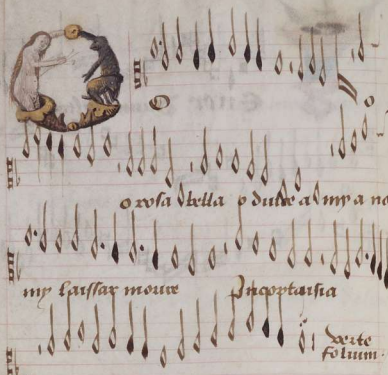 o rosa bella o dulce al my a no
my laissar moure In coptaisia
verte
folium